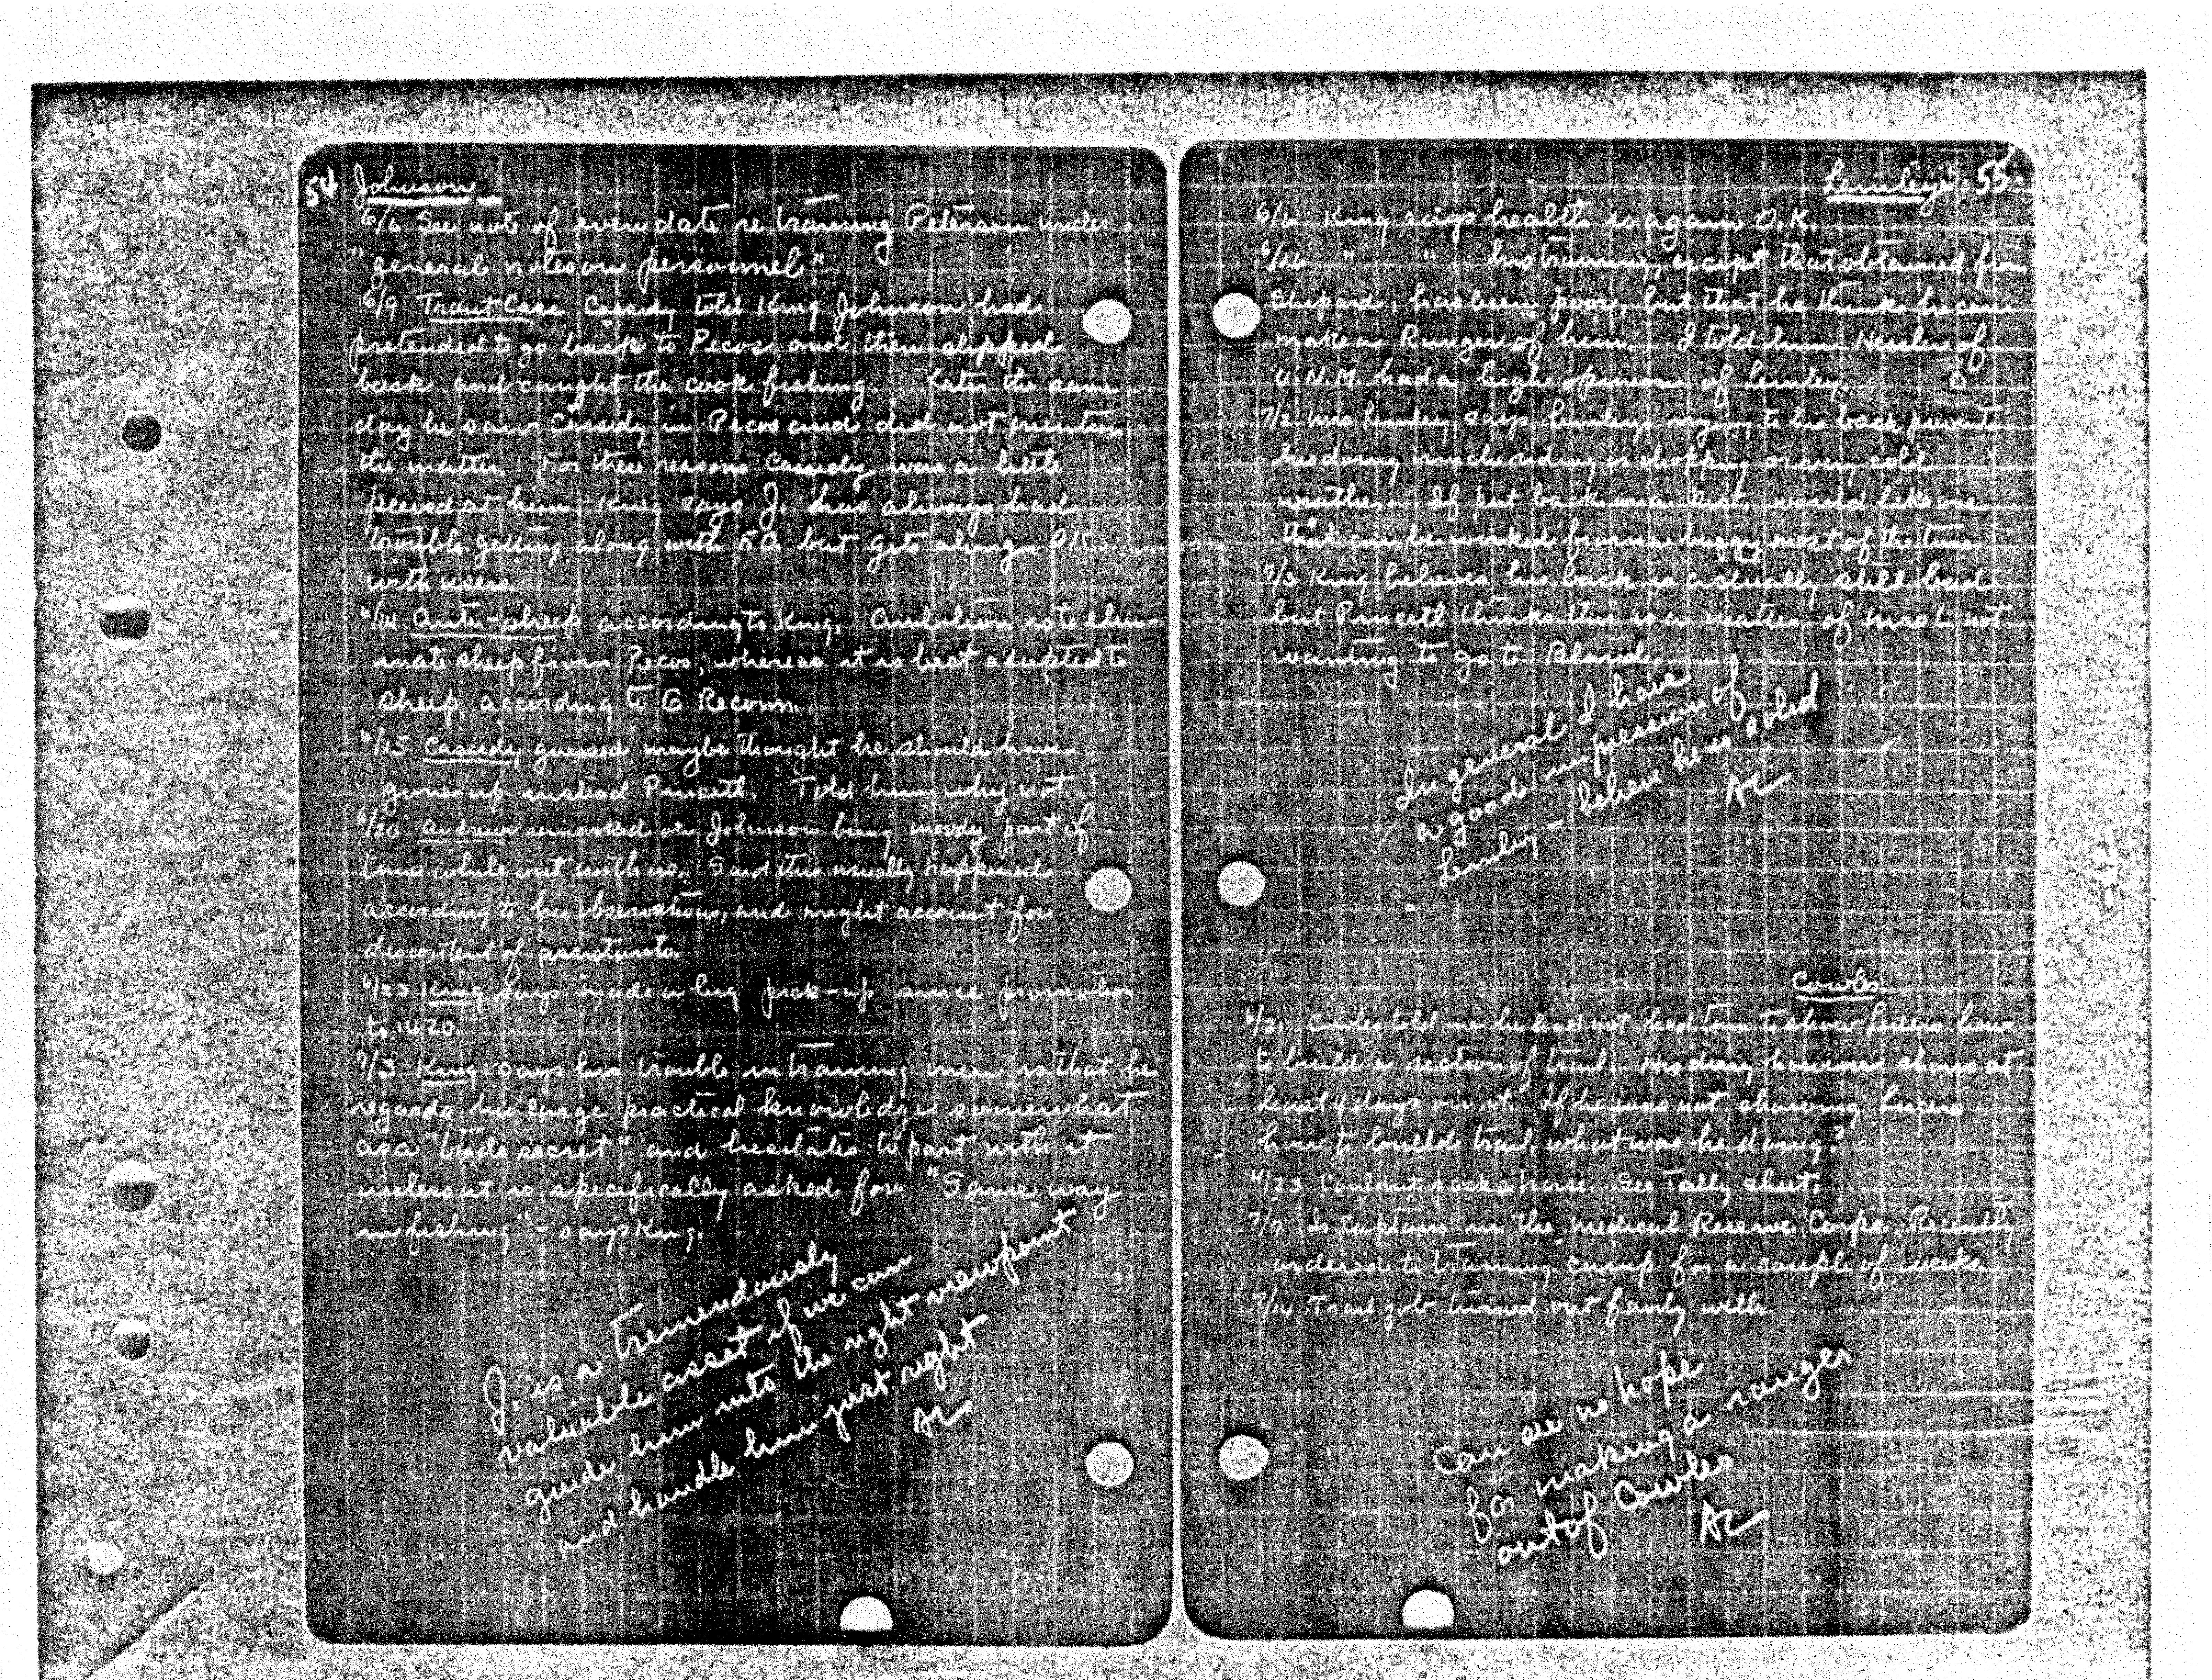 54 Johnson
6/6 See note of even date re training Peterson under
"general notes on personnel"
6/9 Trout Case Cassidy told King Johnson had
pretended to go back to Pecos and then slipped
back and caught the cook fishing. Later the same
day he saw Cassidy in Pecos and did not mention
the matter. For these reasons Cassidy was a little
peeved at him. King says J. has always had
trouble getting along with F.O. but gets along O.K.
with users.
6/14 Anti-sheep according to King. Ambition is to elim-
inate sheep from Pecos; whereas it is best adapted to
sheep, according to G Reconn.
6/15 Cassidy guessed maybe thought he should have
gone up instead Pincett. Told him why not.
6/20 Andrews remarked on Johnson being moody part of
time while out with us. Said this usually happened
according to his observations, and might account for
discontent of assistants.
6/23 King says made a big pick-up since promotion
to 1420.
7/3 King says his trouble in training men is that he
regards his large practical knowledge somewhat
as a "trade secret" and hesitates to part with it
unless it is specifically asked for. "Same way
in fishing" - says King.
J. is a tremendously
valuable asset if we can
guide him into the right viewpoint
and handle him just right
AL
Lemley 55
6/6 King says health is again O.K.
6/16 " " his training, except that obtained from
Shepard, has been poor, but that he thinks he can
make a Ranger of him. I told him Hessler of
U.N.M. had a high opinion of Lemley.
7/2 Mrs Lemley says Lemleys injury to his back prevents
his doing much riding or chopping or very cold
weather. If put back on a Dist. would like one
that can be worked from a buggy most of the time.
7/3 King believes his back is actually still bad
but Pincett thinks this is a matter of Mrs L not
wanting to go to Bland.
In general I have
a good impression of
Lemley - believe he is solid
AL
Cowles
6/21 Cowles told me he had not had time to show Lucero how
to build a section of trail. His diary however shows at
least 4 days on it. If he was not showing Lucero
how to build trail, what was he doing?
4/23 Couldnt pack a horse. See Tally sheet.
7/7 Is Captain in the Medical Reserve Corps. Recently
ordered to training camp for a couple of weeks.
7/14 Trail job turned out fairly well.
Can see no hope
for making a ranger
out of Cowles
AL